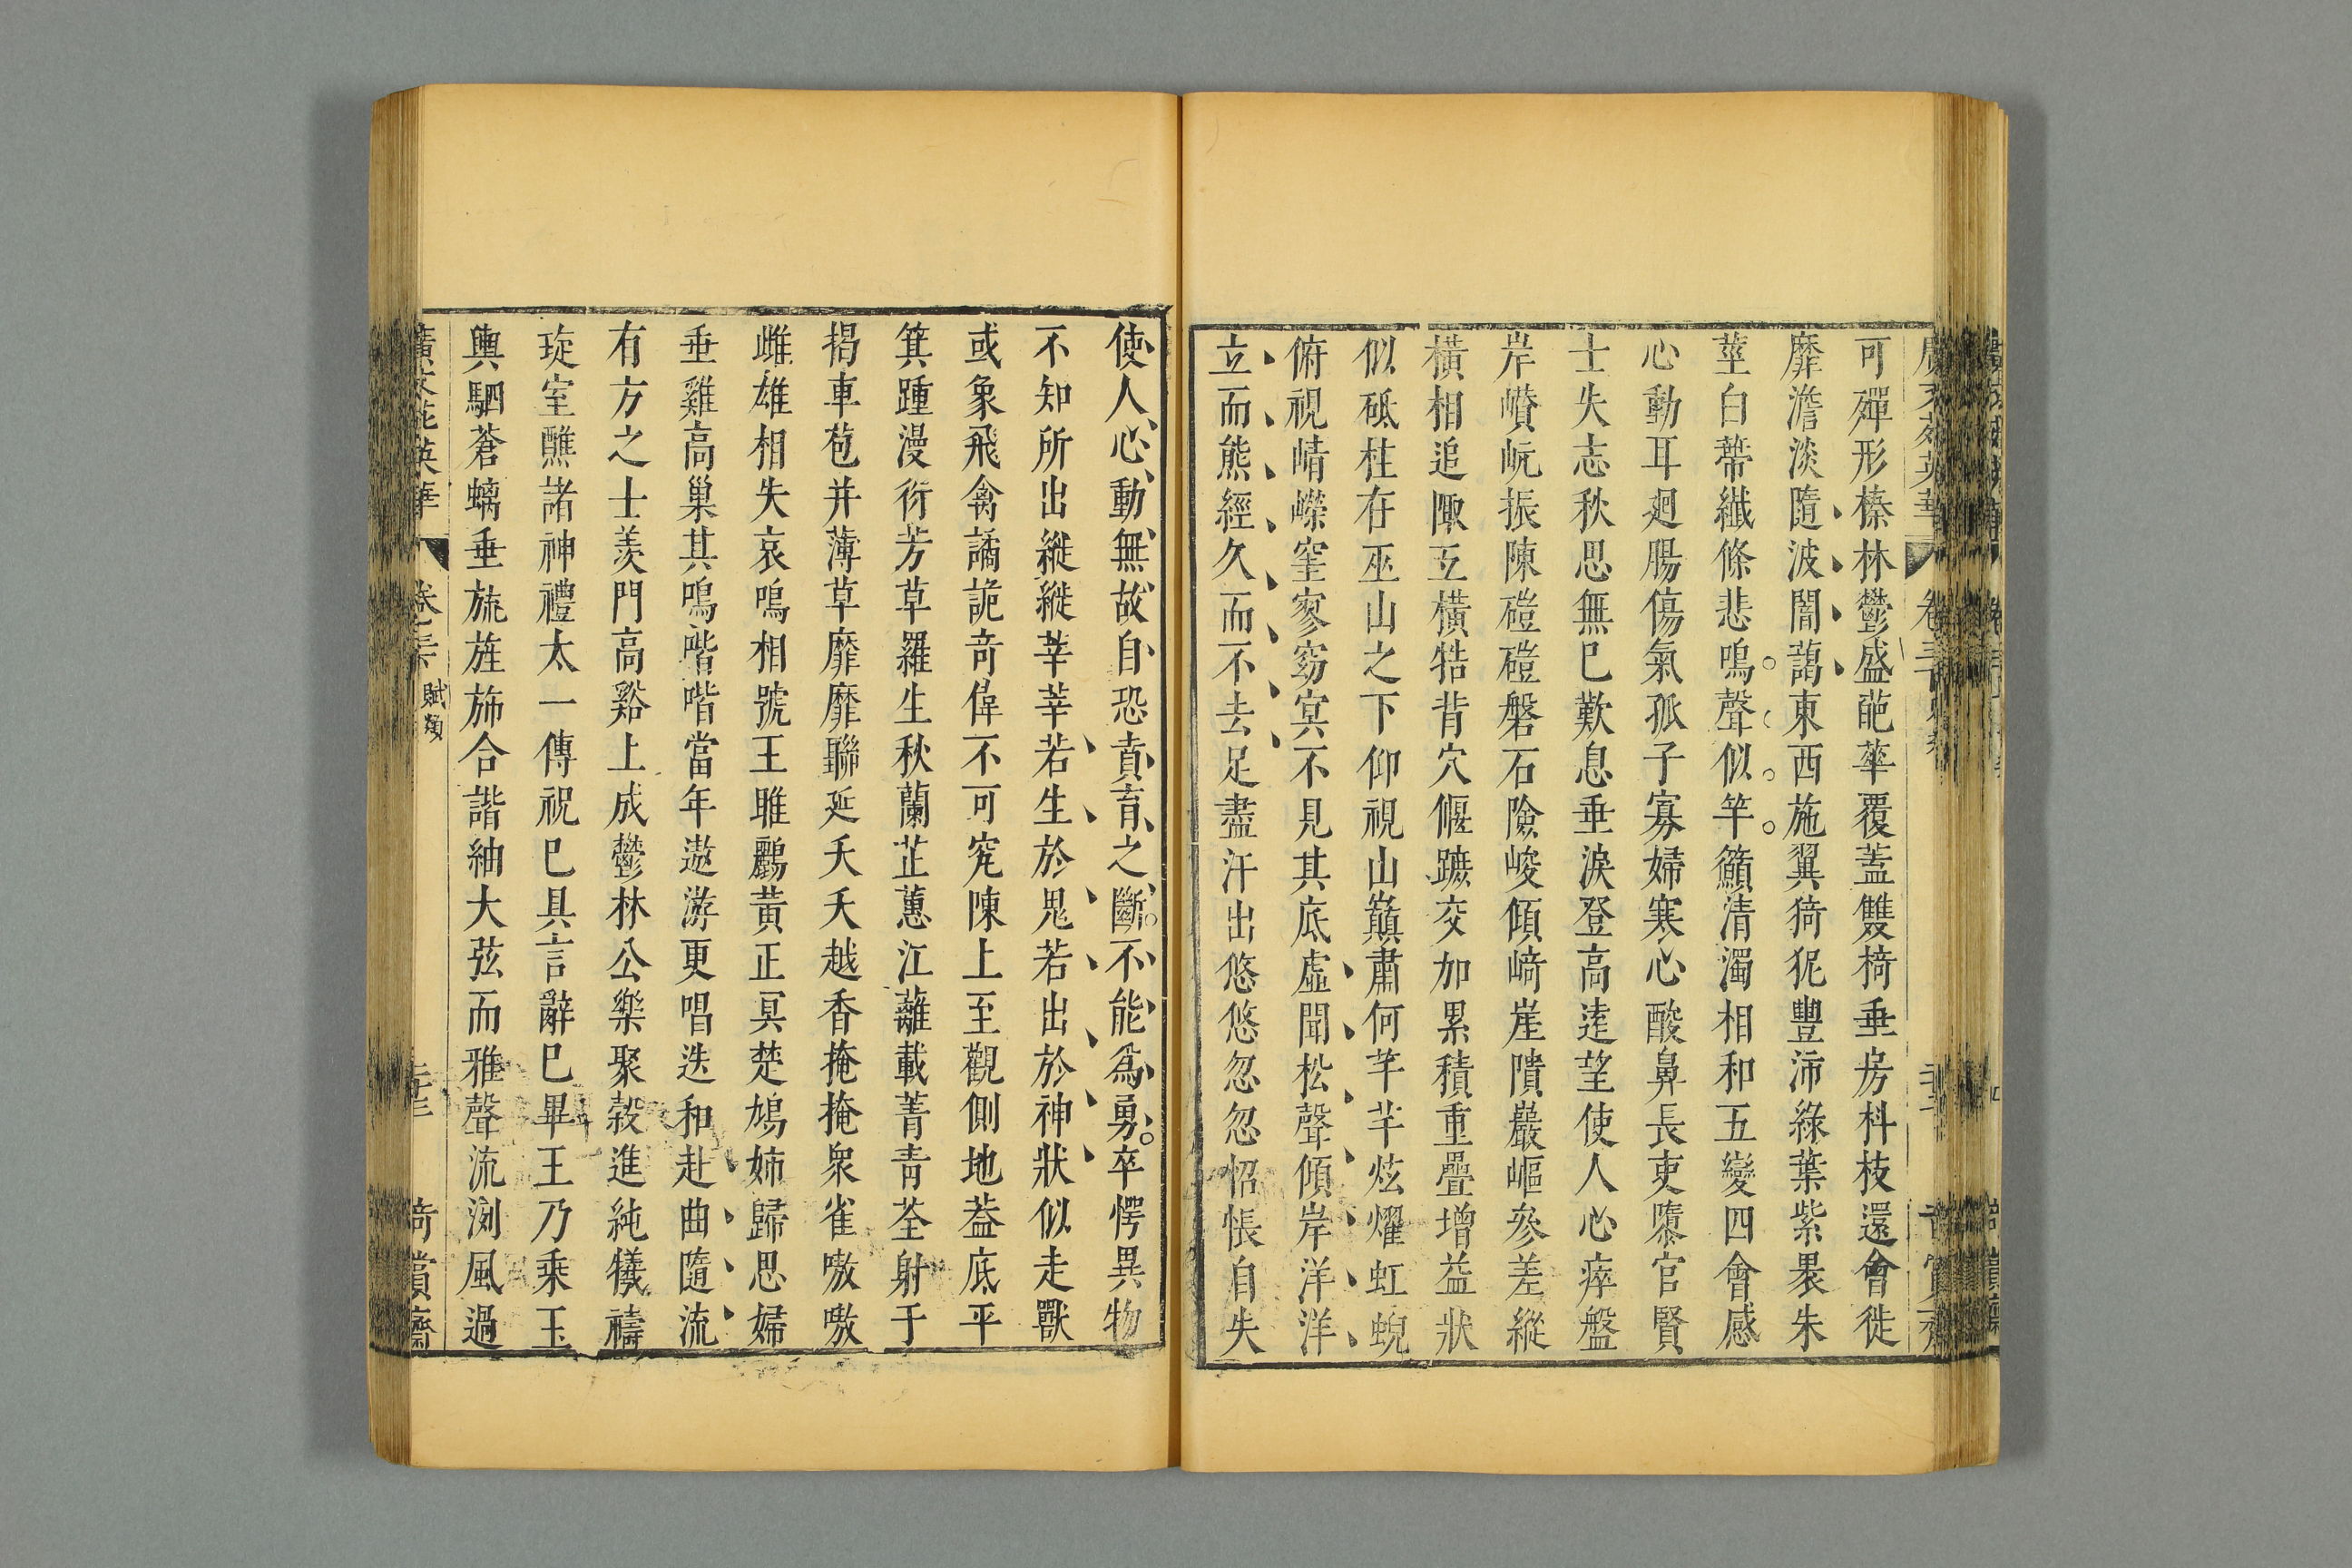 可殫形榛林鬱盛葩華覆蓋雙椅垂房枓枝還會徙
靡澹淡隨波闇藹東西施翼猗狔豐沛綠葉紫褁朱
莖白蔕纖條悲鳴聲似竿籟清濁相和五變四會感
心動耳廻腸傷氣孤子寡婦寒心酸鼻長吏隳官賢
士失志秋思無已歎息垂淚登高遠望使人心瘁盤
岸巑岏振陳磑磑磐石險峻傾崎崖隤巖嶇參差縱
橫相追陬互橫牾背穴偃蹠交加累積重疊增益狀
似砥柱在巫山之下仰視山巔肅何芊芊炫燿虹蜺
俯視崝嶸窐寥窈冥不見其底虛聞松聲傾岸洋洋
立而熊經久而不去足盡汗出悠悠忽忽怊悵自失
使人心動無故自恐賁育之斷不能爲勇卒愕異物
不知所出縱縱莘莘若生於鬼若出於神狀似走獸
或象飛禽譎詭奇偉不可究陳上至觀側地葢底平
箕踵漫衍芳草羅生秋蘭茝蕙江蘺載菁青荃射于
揭車苞并薄草靡靡聯延夭夭越香掩掩衆雀嗷嗷
雌雄相失哀鳴相號王雎鸝黃正冥楚鳩姉歸思婦
垂雞高巢其鳴喈喈當年遨游更唱迭和赴曲隨流
有方之士羨門高谿上成鬱林公樂聚榖進純犧禱
琁室醮諸神禮太一傳祝已具言辭已畢王乃乘玉
輿駟蒼螭垂旒旌斾合諧紬大弦而雅聲流洌風過
廣文苑英華 賦類